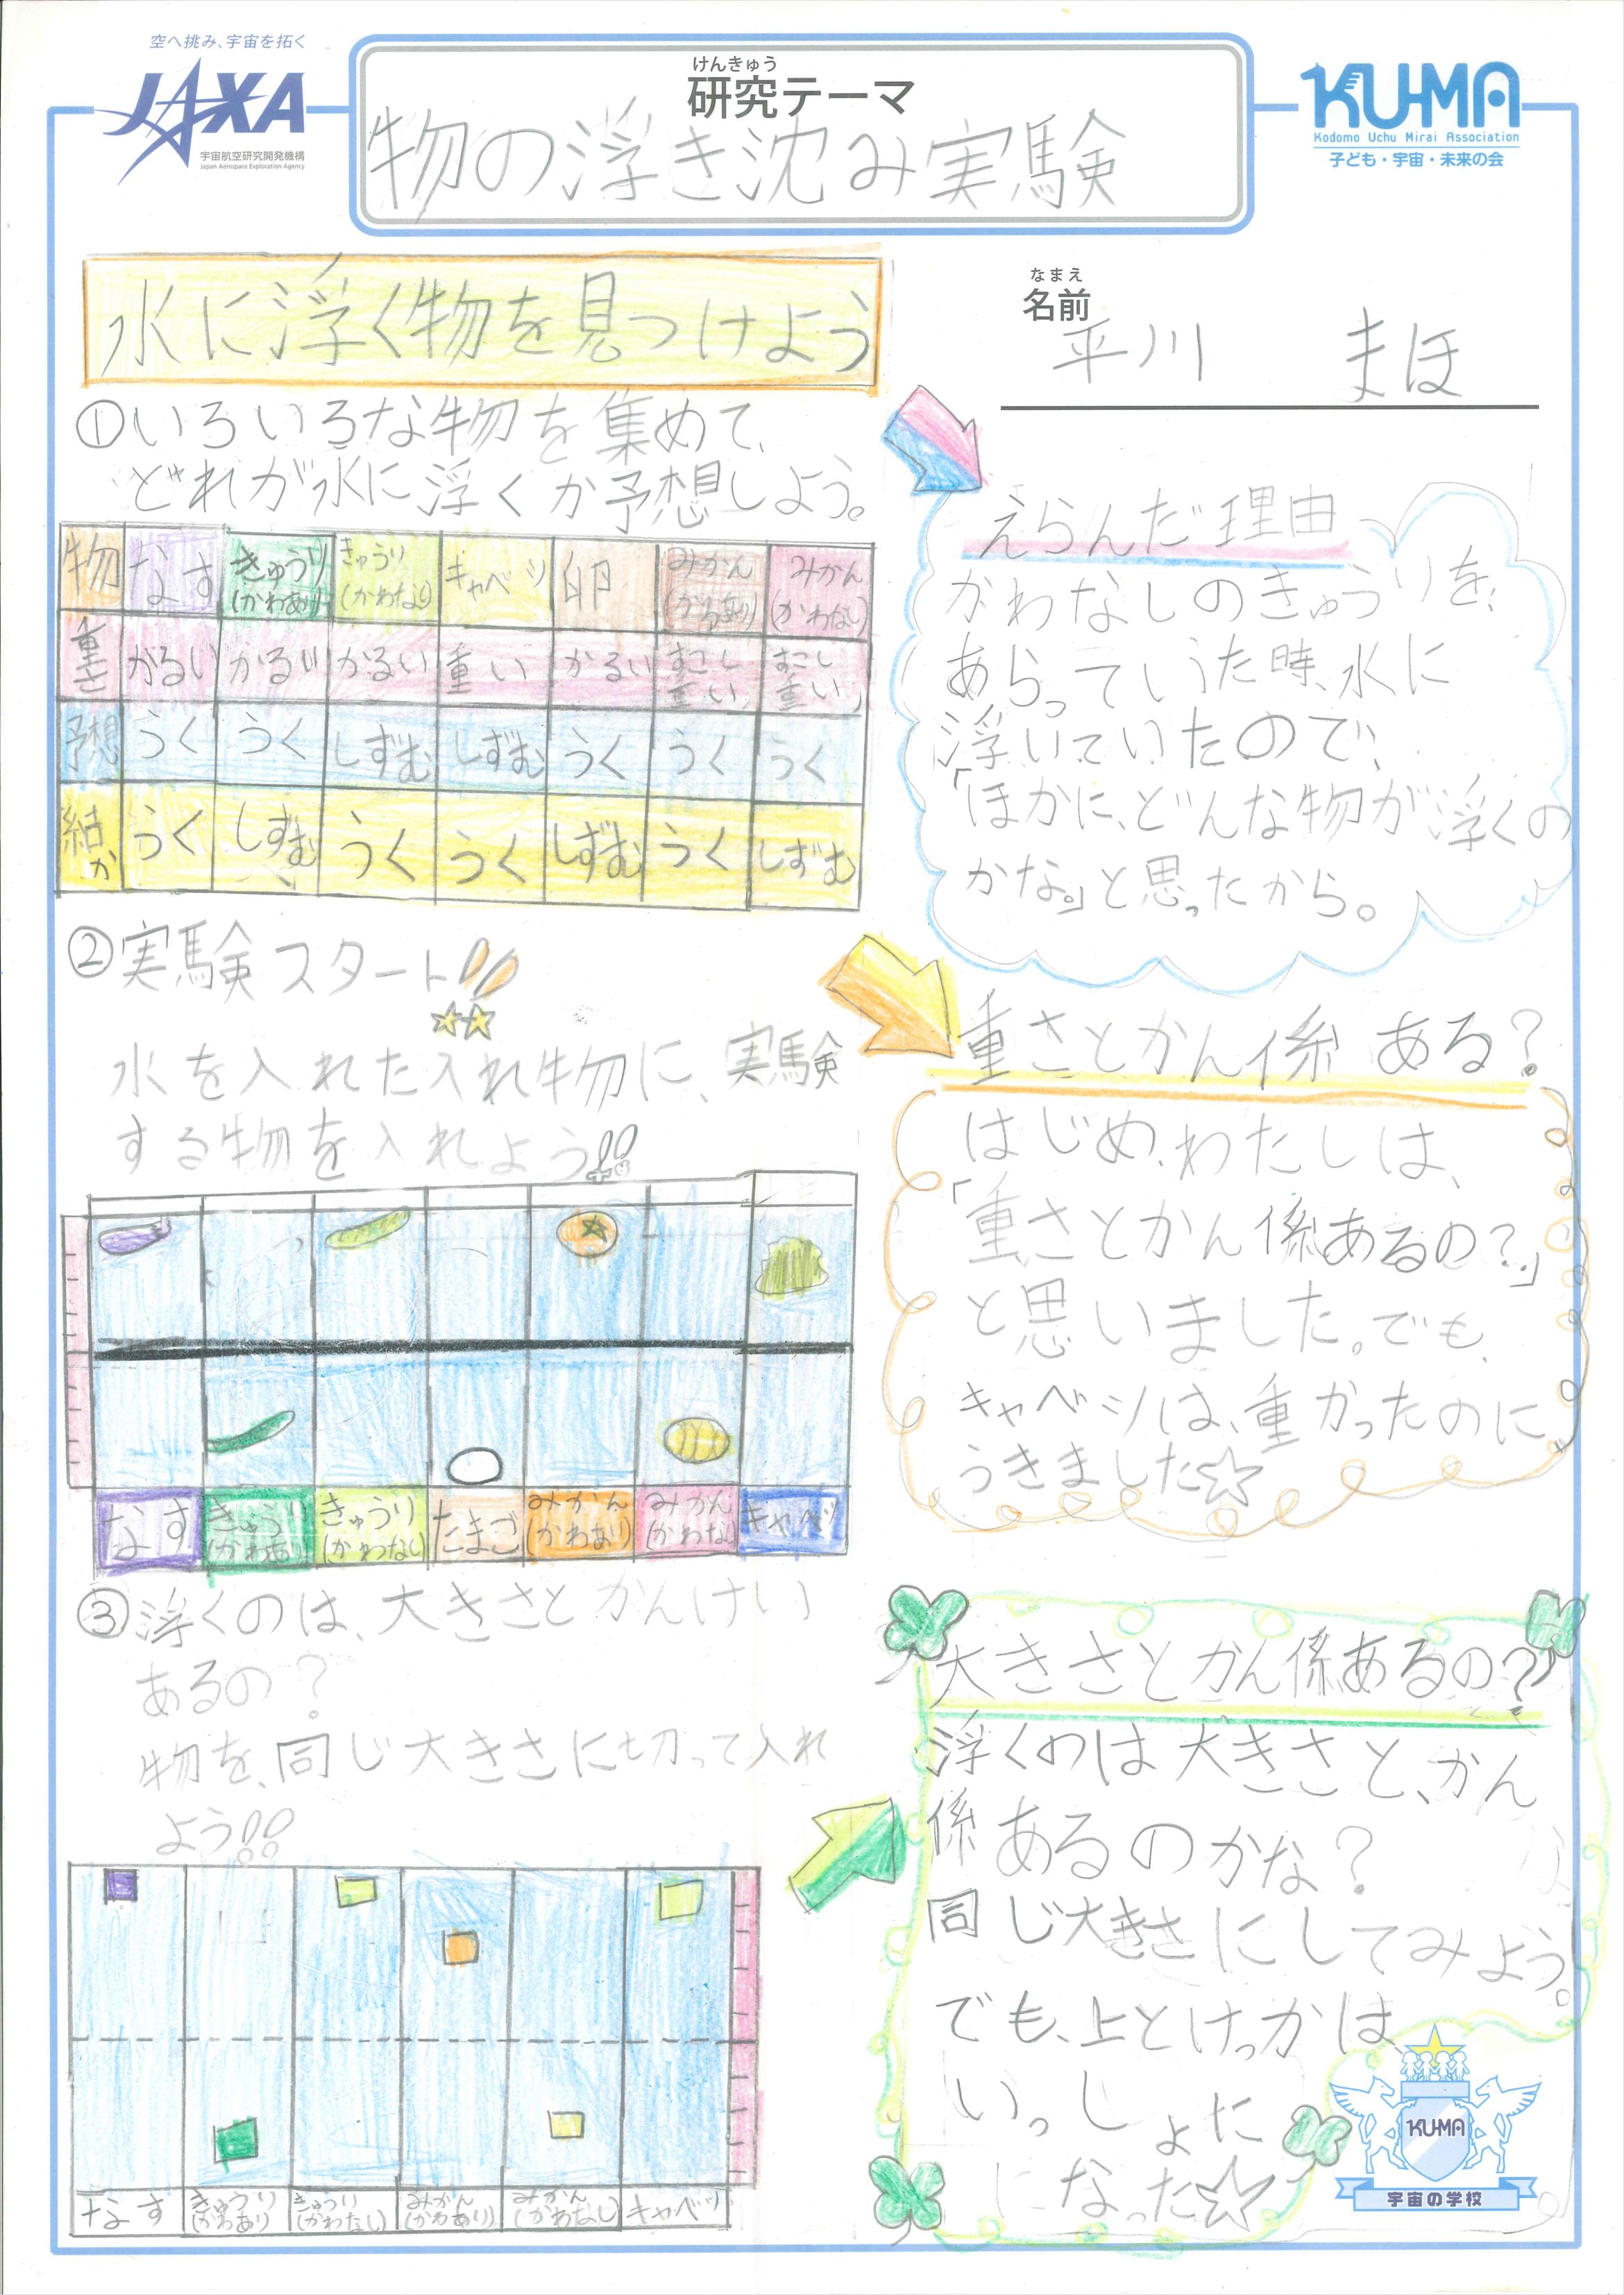 空へ挑み、宇宙を拓く
JAXA
宇宙航空研究開発機構
Japan Aerospace Exploration Agency
けんきゅう
研究テーマ
物の浮き沈み実験
KUMA
Kodomo Uchu Mirai Association
子ども・宇宙・未来の会
なまえ
名前
平川 まほ
水に浮く物を見つけよう
①いろいろな物を集めて、
どれが水に浮くか予想しよう。
物 なす きゅうり(かわあり) きゅうり(かわなし) キャベツ 卵 みかん(かわあり) みかん(かわなし)
重さ かるい かるい かるい 重い かるい すこし重い すこし重い
予想 うく うく しずむ しずむ うく うく うく
結か うく しずむ うく うく しずむ うく しずむ
②実験スタート!!
水を入れた入れ物に、実験
する物を入れよう!!
なす きゅうり(かわあり) きゅうり(かわなし) たまご みかん(かわあり) みかん(かわなし) キャベツ
③浮くのは、大きさとかんけい
あるの?
物を、同じ大きさに切って入れ
よう!!
なす きゅうり(かわあり) きゅうり(かわなし) みかん(かわあり) みかん(かわなし) キャベツ
えらんだ理由
かわなしのきゅうりを、
あらっていた時、水に
浮いていたので、
「ほかに、どんな物が浮くの
かな。」と思ったから。
重さとかん係ある?
はじめ、わたしは、
「重さとかん係あるの?」
と思いました。でも、
キャベツは、重かったのに
うきました☆
大きさとかん係あるの?
浮くのは大きさと、かん
係あるのかな?
同じ大きさにしてみよう。
でも、上とけっかは、
いっしょに
になった☆
KUMA
宇宙の学校